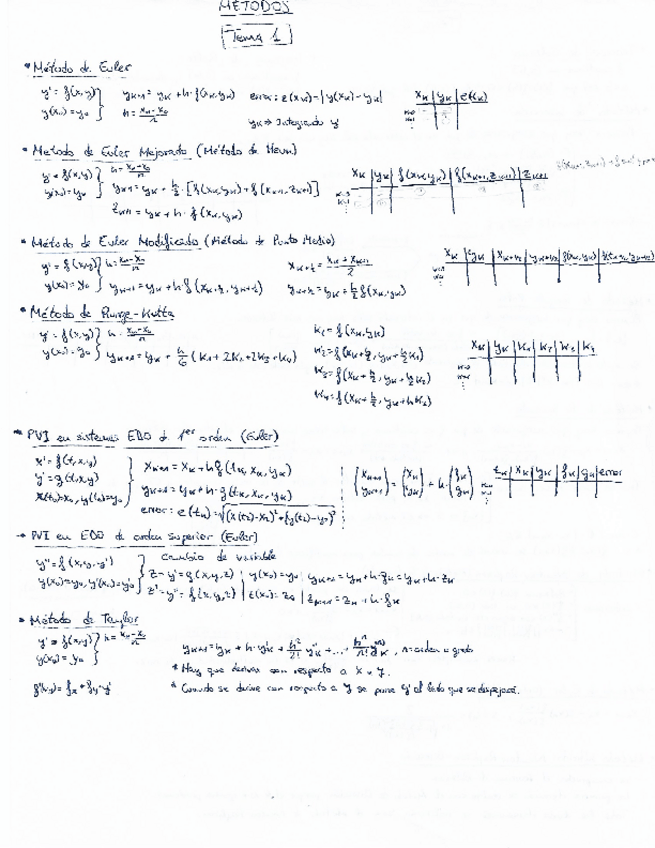 MÉTODOS
Tema 1
* Método de Euler
y' = f(x,y)
y(x₀) = y₀
yₖ₊₁ = yₖ + h·f(xₖ,yₖ)
h = (xₙ - x₀)/n
error: e(xₖ) = |y(xₖ) - yₖ|
yₖ ⇒ Integrando y'
xₖ | yₖ | e(xₖ)
* Método de Euler Mejorado (Método de Heun)
y' = f(x,y)
y(x₀) = y₀
h = (xₙ - x₀)/n
yₖ₊₁ = yₖ + h/2 · [f(xₖ,yₖ) + f(xₖ₊₁, zₖ₊₁)]
zₖ₊₁ = yₖ + h · f(xₖ,yₖ)
xₖ | yₖ | f(xₖ,yₖ) | f(xₖ₊₁,zₖ₊₁) | zₖ₊₁
* Método de Euler Modificado (Método de Punto Medio)
y' = f(x,y)
y(x₀) = y₀
h = (xₙ - x₀)/n
yₖ₊₁ = yₖ + h f(xₖ₊½, yₖ₊½)
xₖ₊½ = (xₖ + xₖ₊₁)/2
yₖ₊½ = yₖ + h/2 f(xₖ,yₖ)
xₖ | yₖ | xₖ₊½ | yₖ₊½ | f(xₖ,yₖ) | f(xₖ₊½,yₖ₊½)
* Método de Runge-Kutta
y' = f(x,y)
y(x₀) = y₀
h = (xₙ - x₀)/n
yₖ₊₁ = yₖ + h/6 (K₁ + 2K₂ + 2K₃ + K₄)
K₁ = f(xₖ,yₖ)
K₂ = f(xₖ + h/2, yₖ + h/2 K₁)
K₃ = f(xₖ + h/2, yₖ + h/2 K₂)
K₄ = f(xₖ + h/2, yₖ + h K₃)
xₖ | yₖ | K₁ | K₂ | K₃ | K₄
* PVI en sistemas EDO de 1er orden (Euler)
x' = f(t,x,y)
y' = g(t,x,y)
x(t₀) = x₀, y(t₀) = y₀
xₖ₊₁ = xₖ + h f(tₖ, xₖ, yₖ)
yₖ₊₁ = yₖ + h · g(tₖ, xₖ, yₖ)
error: e(tₖ) = √((x(tₖ) - xₖ)² + (y(tₖ) - yₖ)²)
(xₖ₊₁ yₖ₊₁) = (xₖ yₖ) + h · (fₖ gₖ)
tₖ | xₖ | yₖ | fₖ | gₖ | error
→ PVI en EDO de orden superior (Euler)
y'' = f(x,y,y')
y(x₀) = y₀, y'(x₀) = y'₀
Cambio de variable
z = y' = g(x,y,z) | y(x₀) = y₀ | yₖ₊₁ = yₖ + h·gₖ = yₖ + h·zₖ
z' = y'' = f(x,y,z) | z(x₀) = z₀ | zₖ₊₁ = zₖ + h·fₖ
* Método de Taylor
y' = f(x,y)
y(x₀) = y₀
h = (xₙ - x₀)/n
yₖ₊₁ = yₖ + h·y'ₖ + h²/2! y''ₖ + ... + hⁿ/n! yₖⁿ⁾, n = orden o grado
* Hay que derivar con respecto a x e y.
f'(x,y) = fₓ + f_y · y'
* Cuando se derive con respecto a y se pone y' al lado que se despejará.